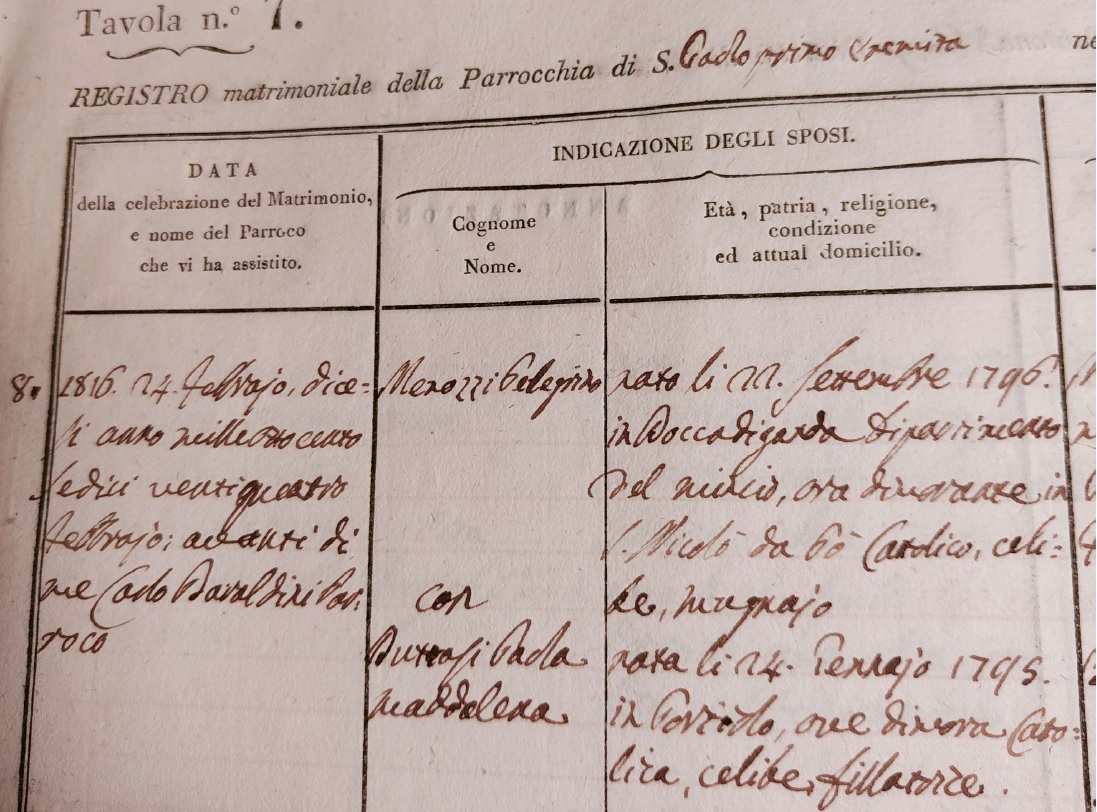 Tavola n.º 7.
REGISTRO matrimoniale della Parrocchia di S. Paolo primo Eremita
ne
DATA
della celebrazione del Matrimonio,
e nome del Parroco
che vi ha assistito.
INDICAZIONE DEGLI SPOSI.
Cognome
e
Nome.
Età, patria, religione,
condizione
ed attual domicilio.
8. 1816. 24. febbrajo, dice=
si anno mille otto cento
sedici venti quattro
febbrajo; avanti di
me Carlo Baraldini Par:
roco
Menozzi Pelegrino
con
Buttasi Paola
Maddalena
nato li 22. Settembre 1796.
in Boccadiganda Dipartimento
del mincio, ora dimorante in
S. Nicolò da Pò Catolico, celi=
be, mugnajo
nata li 24. Gennajo 1795.
in Portiolo, ove dimora Cato=
lica, celibe, fillatrice.